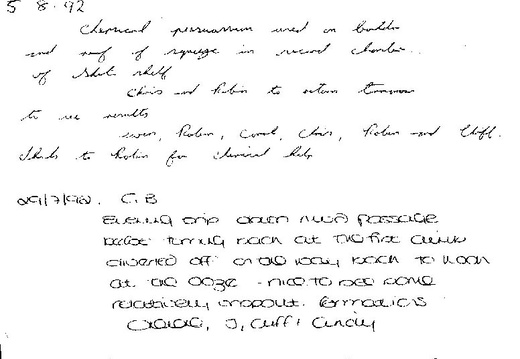 5 8.92
Chemical persuasion used on boulder
and roof of squeeze in second chamber.
of Shale shelf
Chris and Robin to return tomorrow
to see results
Robin, Carol, Chris, Robin and Cliff.
Thanks to Robin for chemical help
29/7/92. C.B
Evening trip down main passage
before turning back at the first climb
diverted off on the way back to look
at the ooze - nice to see some
relatively formations
J, Cliff + Andy